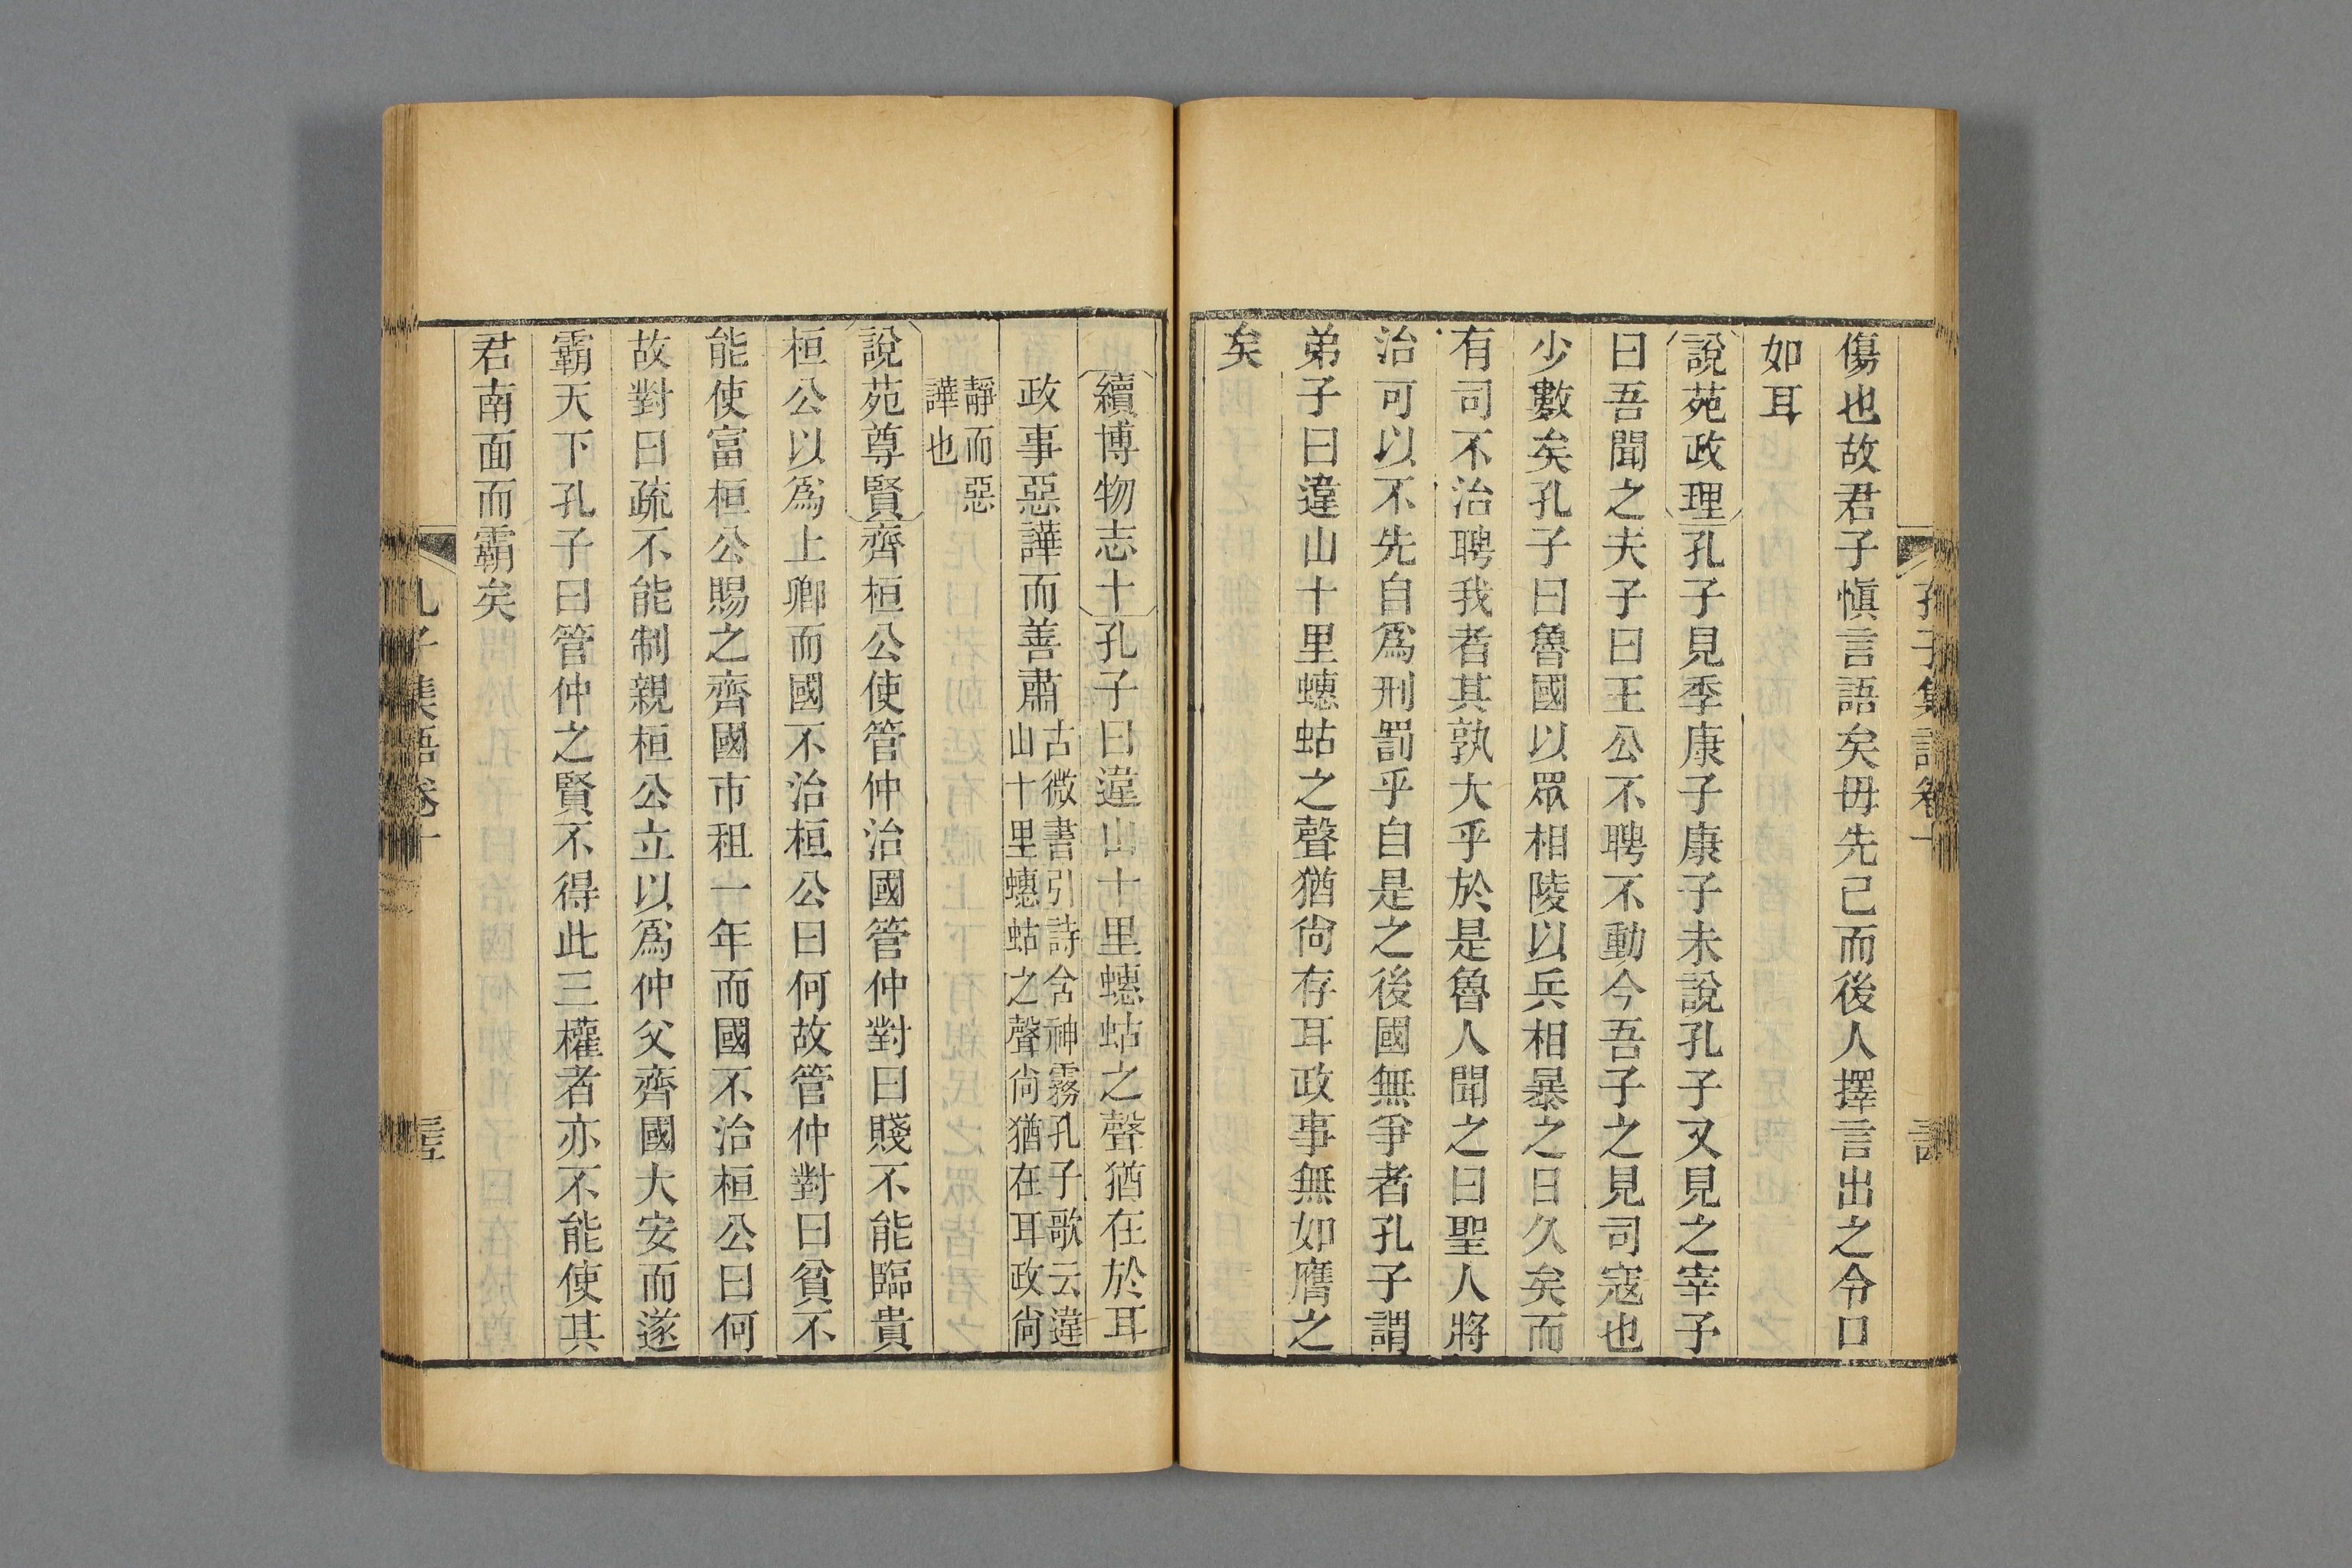 傷也故君子愼言語矣毋先己而後人擇言出之令口
如耳
說苑政理孔子見季康子康子未說孔子又見之宰予
曰吾聞之夫子曰王公不聘不動今吾子之見司寇也
少數矣孔子曰魯國以眾相陵以兵相暴之日久矣而
有司不治聘我者其孰大乎於是魯人聞之曰聖人將
治可以不先自爲刑罰乎自是之後國無爭者孔子謂
弟子曰違山十里蟪蛄之聲猶尙存耳政事無如膺之
矣
續博物志十孔子曰違山十里蟪蛄之聲猶在於耳
政事惡譁而善肅古微書引詩含神霧孔子歌云違
山十里蟪蛄之聲尙猶在耳政尙
靜而惡
譁也
說苑尊賢齊桓公使管仲治國管仲對曰賤不能臨貴
桓公以爲上卿而國不治桓公曰何故管仲對曰貧不
能使富桓公賜之齊國市租一年而國不治桓公曰何
故對曰疏不能制親桓公立以爲仲父齊國大安而遂
霸天下孔子曰管仲之賢不得此三權者亦不能使其
君南面而霸矣
孔子集語卷十